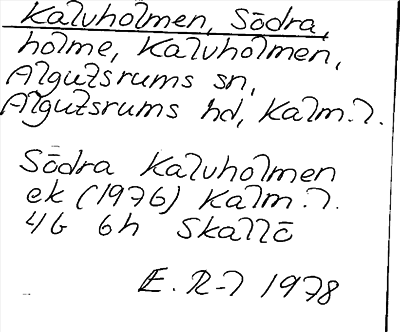 Kalvholmen, Södra,
holme, Kalvholmen,
Algutsrums sn,
Algutsrums hd, Kalm. l.
Södra Kalvholmen
ek (1976) Kalm. l.
4G 6h Skallö
E. R-l 1978